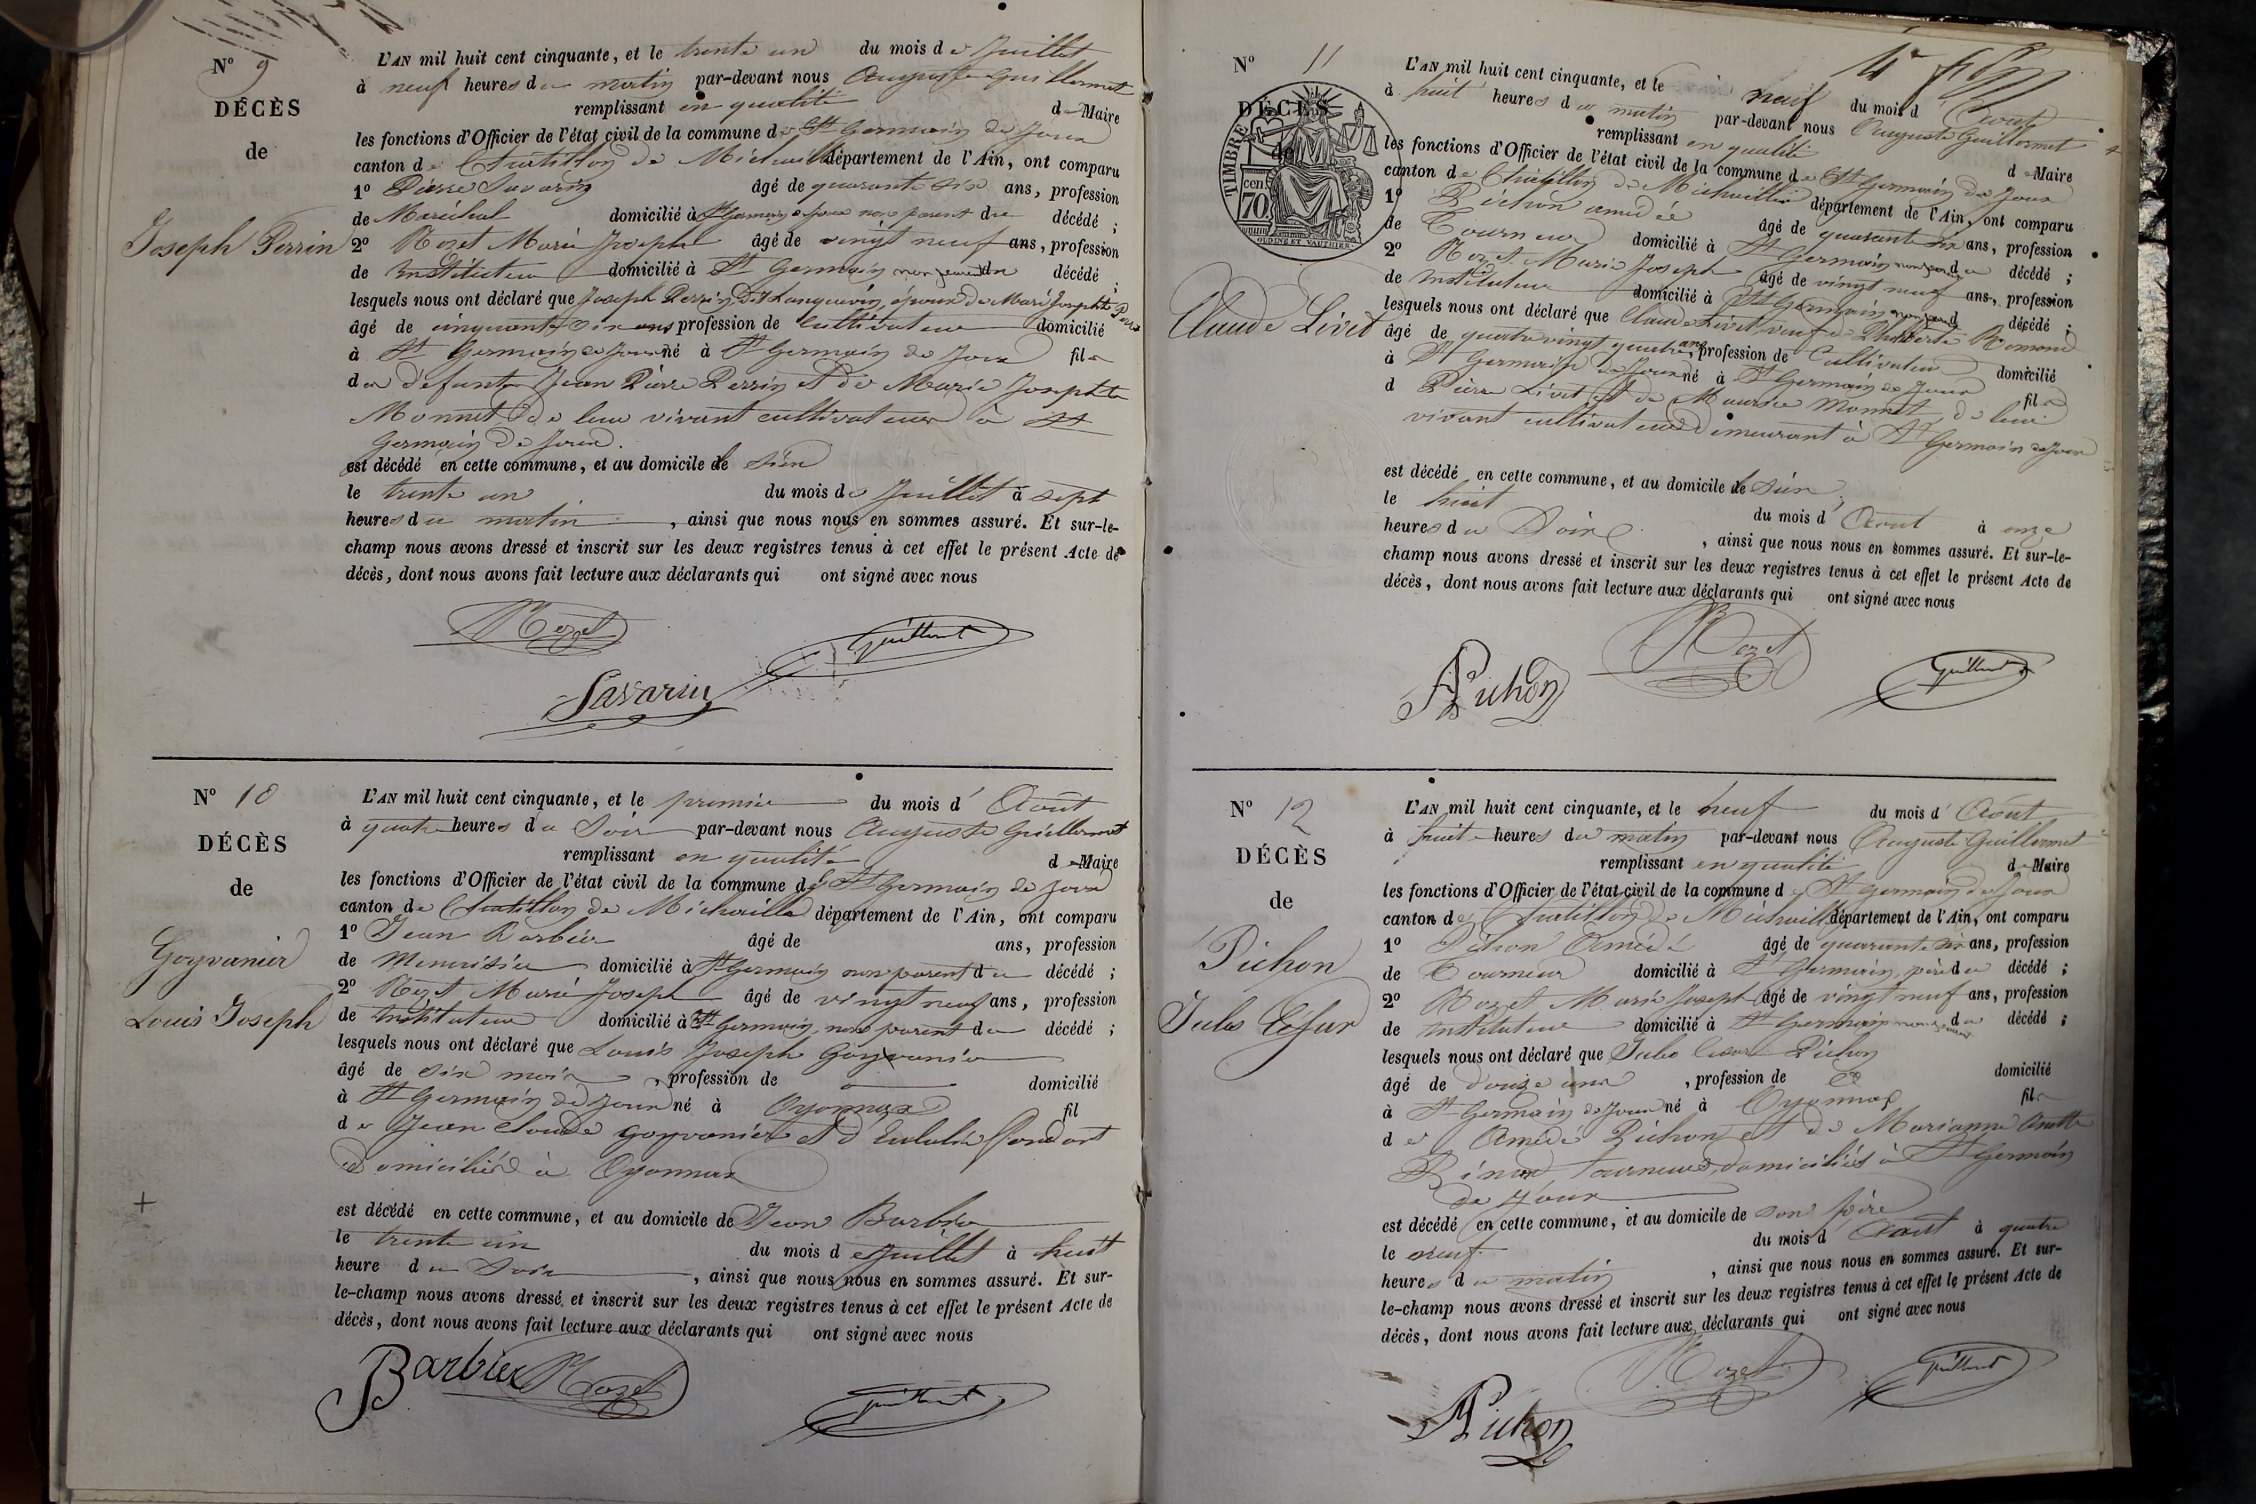 N° 9
DÉCÈS
de
Joseph Perrin
L'AN mil huit cent cinquante, et le trente un du mois de Juillet
à neuf heures du matin par-devant nous Auguste Guillermet
remplissant en qualité de Maire
les fonctions d'Officier de l'état civil de la commune de St Germain de Joux
canton de Chatillon de Michaille département de l'Ain, ont comparu
1° Pierre Savarin âgé de quarante six ans, profession
de Maréchal domicilié à St Germain de Joux non parent du décédé ;
2° Rozet Marie Joseph âgé de vingt neuf ans, profession
de Instituteur domicilié à St Germain non parent du décédé ;
lesquels nous ont déclaré que Joseph Perrin, Dit Languevin, époux de Marie Josephte
âgé de cinquante six ans profession de Cultivateur domicilié
à St Germain de Joux né à St Germain de Joux fils
de défunts Jean Pierre Perrin et de Marie Josephte
Monnet de leur vivant cultivateurs à St
Germain de Joux.
est décédé en cette commune, et au domicile de sien
le trente un du mois de Juillet à sept
heures du matin, ainsi que nous nous en sommes assuré. Et sur-le-
champ nous avons dressé et inscrit sur les deux registres tenus à cet effet le présent Acte de
décès, dont nous avons fait lecture aux déclarants qui ont signé avec nous
Rozet
Guillermet
Savarin
N° 10
DÉCÈS
de
Goyvanier
Louis Joseph
L'AN mil huit cent cinquante, et le premier du mois d' Août
à quatre heures du Soir par-devant nous Auguste Guillermet
remplissant en qualité de Maire
les fonctions d'Officier de l'état civil de la commune de St Germain de Joux
canton de Chatillon de Michaille département de l'Ain, ont comparu
1° Jean Barbier âgé de ans, profession
de Menuisier domicilié à St Germain non parent du décédé ;
2° Rozet Marie Joseph âgé de vingt neuf ans, profession
de Instituteur domicilié à St Germain, non parent du décédé ;
lesquels nous ont déclaré que Louis Joseph Goyvanier
âgé de six mois, profession de domicilié
à St Germain de Joux né à Oyonnax fil
de Jean Claude Goyvanier et d'Eulalie
domiciliés à Oyonnax
est décédé en cette commune, et au domicile de Jean Barbier
le trente un du mois de Juillet à huit
heure du Soir, ainsi que nous nous en sommes assuré. Et sur-
le-champ nous avons dressé et inscrit sur les deux registres tenus à cet effet le présent Acte de
décès, dont nous avons fait lecture aux déclarants qui ont signé avec nous
Barbier Rozet
Guillermet
N° 11
DÉCÈS
de
TIMBRE
cen. 70
OUDINÉ ET VAUTHIER
Claude Livet
L'AN mil huit cent cinquante, et le neuf du mois d' Août
à huit heures du matin par-devant nous Auguste Guillermet
remplissant en qualité de Maire
les fonctions d'Officier de l'état civil de la commune de St Germain de Joux
canton de Châtillon de Michaille département de l'Ain, ont comparu
1° Pichon amédée âgé de quarante six ans, profession
de Tourneur domicilié à St Germain non parent du décédé ;
2° Rozet Marie Joseph âgé de vingt neuf ans, profession
de Instituteur domicilié à St Germain non parent d décédé ;
lesquels nous ont déclaré que Claude Livet veuf de Philiberte Romand
âgé de quatre vingt quatre ans profession de Cultivateur domicilié
à St Germain de Joux né à St Germain de Joux fils
d Pierre Livet et de Monnet, de leur
vivant cultivateurs demeurant à St Germain de Joux
est décédé en cette commune, et au domicile de sien
le huit du mois d' Août à onze
heures du Soir, ainsi que nous nous en sommes assuré. Et sur-le-
champ nous avons dressé et inscrit sur les deux registres tenus à cet effet le présent Acte de
décès, dont nous avons fait lecture aux déclarants qui ont signé avec nous
Rozet
Pichon
Guillermet
N° 12
DÉCÈS
de
Pichon
Jules César
L'AN mil huit cent cinquante, et le neuf du mois d' Août
à huit heures du matin par-devant nous Auguste Guillermet
remplissant en qualité de Maire
les fonctions d'Officier de l'état civil de la commune de St Germain de Joux
canton de Chatillon de Michaille département de l'Ain, ont comparu
1° Pichon Amédé âgé de quarante six ans, profession
de Tourneur domicilié à St Germain, père du décédé ;
2° Rozet Marie Joseph âgé de vingt neuf ans, profession
de Instituteur domicilié à St Germain non parent du décédé ;
lesquels nous ont déclaré que Jules Cesar Pichon
âgé de douze ans, profession de domicilié
à St Germain de Joux né à Oyonnax fils
de Amédé Pichon et de Marianne
tourneurs domiciliés à St Germain
de Joux
est décédé en cette commune, et au domicile de son père
le neuf du mois d Aoust à quatre
heures du matin, ainsi que nous nous en sommes assuré. Et sur-
le-champ nous avons dressé et inscrit sur les deux registres tenus à cet effet le présent Acte de
décès, dont nous avons fait lecture aux déclarants qui ont signé avec nous
Rozet
Guillermet
Pichon